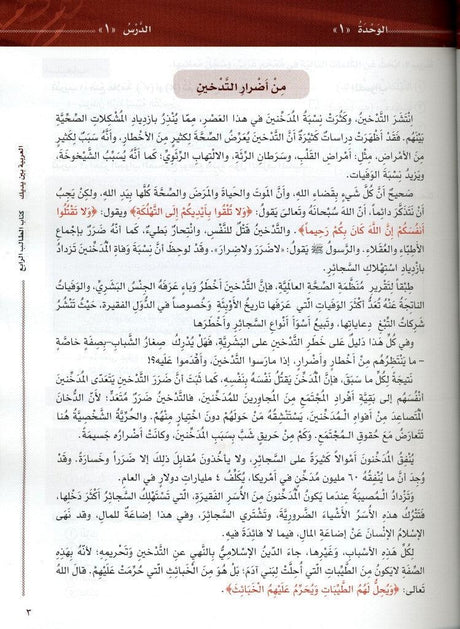 الوَحْدَةُ «١»
الدَّرْسُ «١»
مِنْ أَضْرارِ التَّدْخينِ
انْتَشَرَ التَّدْخينُ، وَكَثُرَتْ نِسْبَةُ المُدَخِّنينَ في هذا العَصْرِ، مِمّا يُنْذِرُ بازديادِ المُشْكِلاتِ الصِّحِّيَّةِ
بَيْنَهُم. فَقَدْ أَظْهَرَتْ دِراساتٌ كَثيرَةٌ أَنَّ التَّدْخينَ يُعَرِّضُ الصِّحَّةَ لِكَثيرٍ مِنَ الأخْطارِ، وأَنَّه سَبَبٌ لِكَثيرٍ
مِنَ الأمْراضِ، مِثْلِ: أمْراضِ القَلْبِ، وسَرَطانِ الرِّئَةِ، والالْتِهابِ الرِّئَوِيِّ؛ كَما أنَّهُ يُسَبِّبُ الشَّيْخوخَةَ،
وَيَزيدُ نِسْبَةَ الوَفَياتِ.
صَحيحٌ أنَّ كُلَّ شَيْءٍ بِقَضاءِ اللهِ، وأنَّ المَوتَ والحَياةَ والمَرَضَ والصِّحَّةَ كُلَّها بِيَدِ اللهِ. ولكِنْ يَجِبُ
أنْ نَتَذَكَّرَ دائِماً، أنَّ اللهَ سُبْحانَهُ وتَعالَى يَقولُ: ﴿وَلا تُلْقُوا بِأَيْدِيكُمْ إِلَى التَّهْلُكَةِ﴾ ويقولُ: ﴿وَلا تَقْتُلُوا
أَنفُسَكُمْ إِنَّ اللَّهَ كَانَ بِكُمْ رَحِيماً﴾. والتَّدْخينُ قَتْلٌ للنَّفْسِ، وانْتِحارٌ بَطيءٌ، كَما أنَّه ضَرَرٌ بإجماعِ
الأطِبّاءِ والعُقَلاءِ. والرَّسولُ ﷺ يقولُ: «لاضَرَرَ ولاضِرارَ». وقَدْ لوحِظَ أنَّ نِسْبَةَ وَفاةِ المُدَخِّنينَ تَزدادُ
بازديادِ اسْتِهْلاكِ السَّجائِرِ.
طِبْقاً لتَقْريرِ مُنَظَّمَةِ الصِّحَّةِ العالَمِيَّةِ، فإنَّ التَّدْخينَ أخْطَرُ وَباءٍ عَرَفَهُ الجِنْسُ البَشَرِيُّ، والوَفَياتُ
النّاتِجَةُ عَنْهُ تُعَدُّ أكْثَرَ الوَفَياتِ الَّتي عَرَفَها تاريخُ الأوْبِئَةِ وخُصوصاً في الدُّوَلِ الفَقيرةِ، حَيْثُ تَنْشُرُ
شَرِكاتُ التَّبْغِ دِعاياتِها، وتَبيعُ أسْوَأَ أنْواعِ السَّجائِرِ وأخْطَرَها
وفي كُلِّ هَذا دَليلٌ على خَطَرِ التَّدْخينِ على البَشَرِيَّةِ، فَهَلْ يُدْرِكُ صِغارُ الشَّبابِ-بِصِفَةٍ خاصَّةٍ
- ما يَنْتَظِرُهُم مِنْ أخْطارٍ وأضْرارٍ، إذا مارَسوا التَّدْخينَ، وأقْدَموا عَلَيه؟!
نَتيجَةً لِكُلِّ ما سَبَقَ، فإنَّ المُدَخِّنَ يَقْتُلُ نَفْسَهُ بِنَفْسِهِ، كَما ثَبَتَ أنَّ ضَرَرَ التَّدْخينِ يَتَعَدَّى المُدَخِّنينَ
أنْفُسَهُم إلى بَقِيَّةِ أفْرادِ المُجتَمَعِ مِنَ المُجاوِرينَ للمُدَخِّنينَ، فالتَّدْخينُ ضَرَرٌ مُتَعَدٍّ؛ لأنَّ الدُّخانَ
المُتَصاعِدَ مِنْ أفْواهِ المُدَخِّنينَ، يَسْتَنْشِقُهُ مَنْ حَوْلَهُم دونَ اخْتِيارٍ مِنْهُم. والحُرِّيَّةُ الشَّخْصِيَّةُ هُنا
تَتَعارَضُ مَعَ حُقوقِ المُجتَمَعِ. وَكَمْ مِنْ حَريقٍ شَبَّ بِسَبَبِ المُدَخِّنينَ، وكانَتْ أضْرارُه جَسيمَةً.
يُنْفِقُ المُدَخِّنونَ أمْوالاً كَثيرَةً على السَّجائِرِ، ولا يأخُذونَ مُقابِلَ ذلِكَ إلا ضَرَراً وخَسارَةً. وقَدْ
وُجِدَ أنَّ ما يُنْفِقُهُ ٦٠ مليون مُدَخِّنٍ في أمْريكا، يُكَلِّفُ ٤ مليارات دولارٍ في العامِ.
وتَزْدادُ المُصيبَةُ عِندَما يَكونُ المُدَخِّنونَ مِنَ الأُسَرِ الفَقيرَةِ، الَّتي تَسْتَهْلِكُ السَّجائِرُ أكْثَرَ دَخْلِها،
فَتَتْرُكُ هذِهِ الأُسَرُ الأشْياءَ الضَّرورِيَّةَ، وتَشْتَري السَّجائِرَ، وفي هذا إضاعَةٌ للمالِ. وقد نَهَى
الإسْلامُ الإنْسانَ عَنْ إضاعَةِ المالِ، فيما لا فائِدَةَ فيهِ.
لِكُلِّ هذِهِ الأسْبابِ، وَغَيْرِها، جاءَ الدّينُ الإسْلامِيُّ بالنَّهيِ عنِ التَّدْخينِ وتَحْريمِهِ؛ لأنَّه بهذِهِ
الصِّفَةِ لايَكونُ مِنَ الطَّيِّباتِ الَّتي أُحِلَّتْ لِبَني آدَمَ؛ بَلْ هُوَ مِنَ الخَبائِثِ الَّتي حُرِّمَتْ عَلَيْهِمْ. قالَ اللهُ
تَعالى: ﴿وَيُحِلُّ لَهُمُ الطَّيِّبَاتِ وَيُحَرِّمُ عَلَيْهِمُ الْخَبَائِثَ﴾.
العربية بين يديك كتاب الطالب الرابع
٣